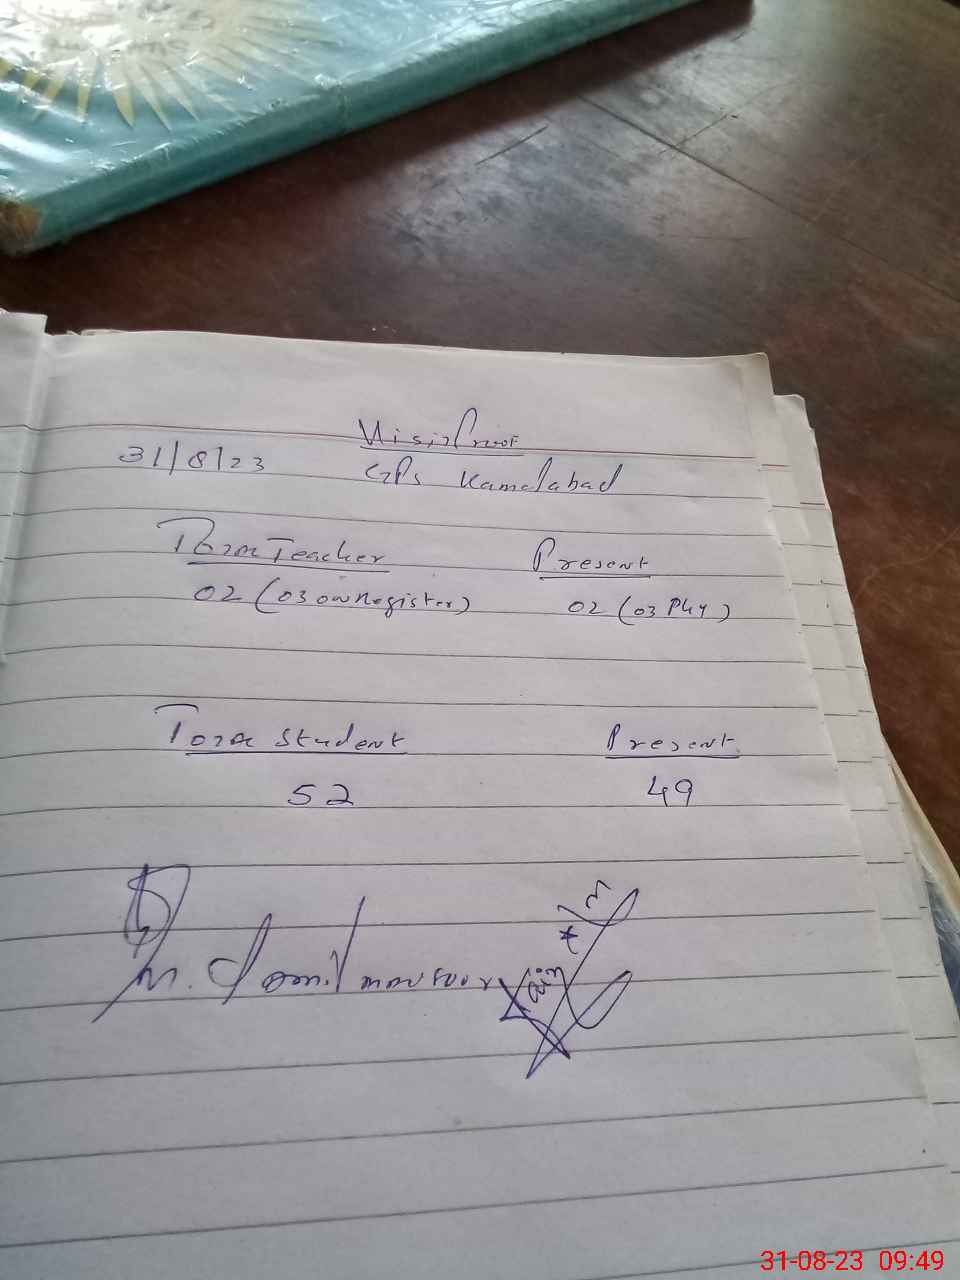 Visit Proof
31/8/23 GPS Kamalabad
Total Teacher Present
02 (03 on Register) 02 (03 Phy)
Total Student Present
52 49
M. Jamil mansoor
31-08-23 09:49